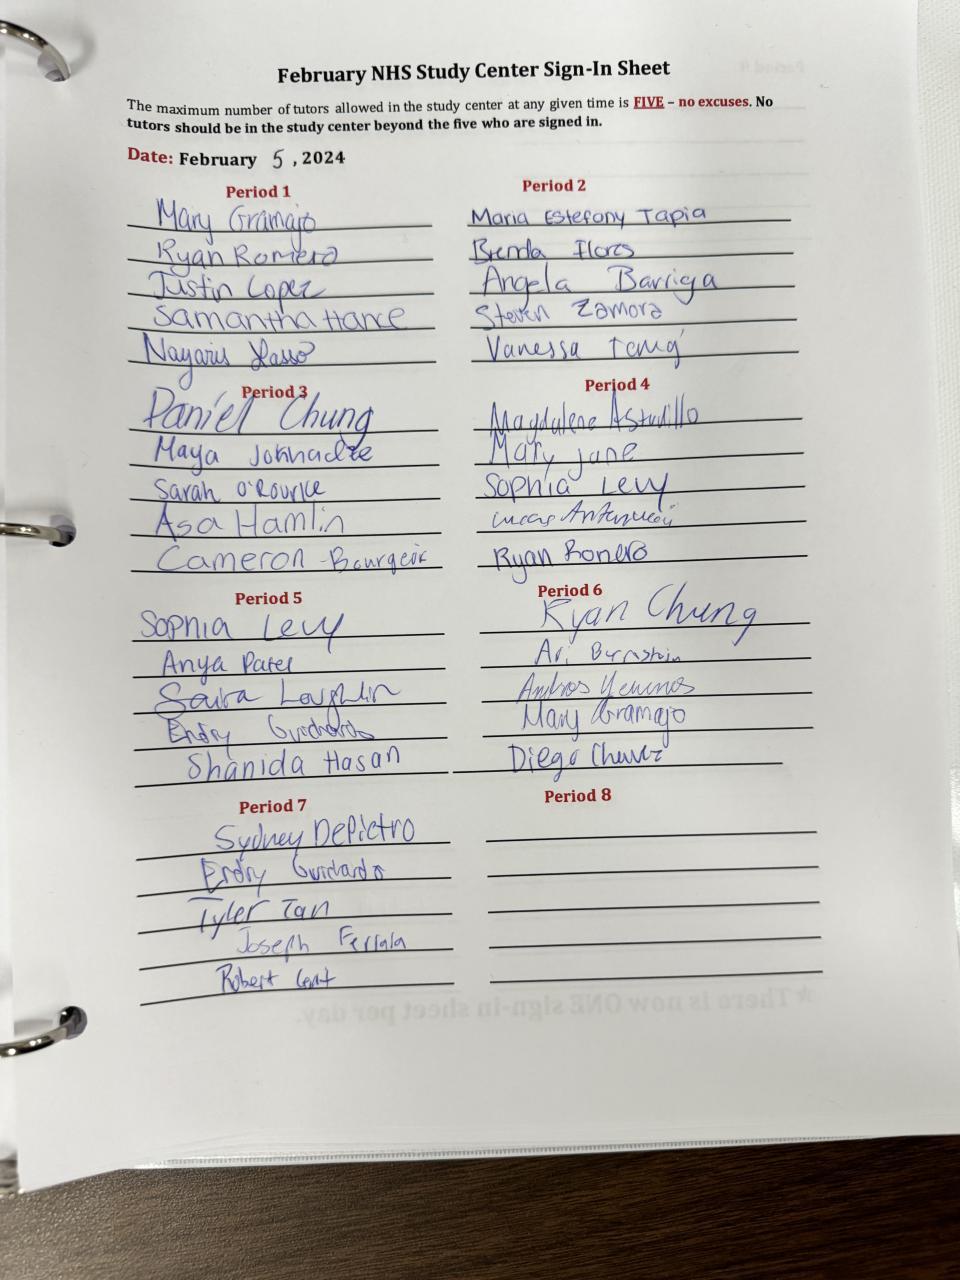 February NHS Study Center Sign-In Sheet
The maximum number of tutors allowed in the study center at any given time is FIVE – no excuses. No
tutors should be in the study center beyond the five who are signed in.
Date: February 5, 2024
Period 1
Mary Gramajo
Ryan Romero
Justin Lopez
Samantha Hance
Nayaris Lasso
Period 2
Maria Estefony Tapia
Brenda Flores
Angela Barriga
Steven Zamora
Vanessa
Period 3
Daniel Chung
Maya
Sarah O'Rourke
Asa Hamlin
Cameron Bourgeois
Period 4
Magdalene Astudillo
Mary Jane
Sophia Levy
Lucas
Ryan Romero
Period 5
Sophia Levy
Anya Patel
Saira Loughlin
Endry Guichardo
Shanida Hasan
Period 6
Ryan Chung
Ari Bernstein
Andros
Mary Gramajo
Diego
Period 7
Sydney DePietro
Endry Guichardo
Tyler Tan
Joseph
Robert
Period 8
★There is now ONE sign-in sheet per day.